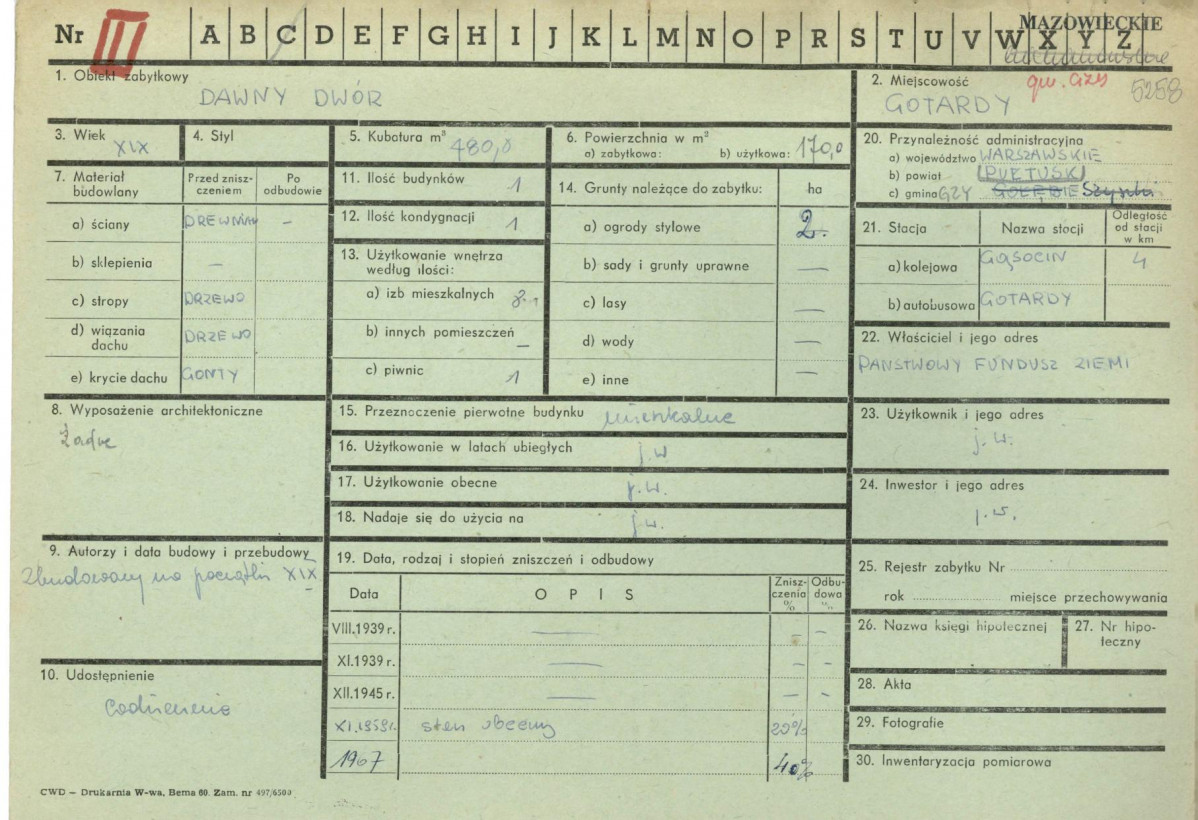 Nr III A B C D E F G H I J K L M N O P R S T U V W X Y Z
MAZOWIECKIE
1. Obiekt zabytkowy
DAWNY DWÓR
2. Miejscowość
gw. Gzy 5258
GOTARDY
3. Wiek XIX
4. Styl
5. Kubatura m³ 480,0
6. Powierzchnia w m²
a) zabytkowa: b) użytkowa: 170,0
20. Przynależność administracyjna
a) województwo WARSZAWSKIE
b) powiat PUŁTUSK
c) gmina GZY GOŁĘBIE
7. Materiał budowlany
Przed zniszczeniem
Po odbudowie
a) ściany DREWNIAN —
b) sklepienia —
c) stropy DRZEWO
d) wiązania dachu DRZEWO
e) krycie dachu GONTY
11. Ilość budynków 1
12. Ilość kondygnacji 1
13. Użytkowanie wnętrza według ilości:
a) izb mieszkalnych 8
b) innych pomieszczeń —
c) piwnic 1
14. Grunty należące do zabytku: ha
a) ogrody stylowe 2.
b) sady i grunty uprawne —
c) lasy —
d) wody —
e) inne —
21. Stacja
Nazwa stacji
Odległość od stacji w km
a) kolejowa GĄSOCIN 4
b) autobusowa GOTARDY
22. Właściciel i jego adres
PAŃSTWOWY FUNDUSZ ZIEMI
8. Wyposażenie architektoniczne
Żadne
15. Przeznaczenie pierwotne budynku mieszkalne
16. Użytkowanie w latach ubiegłych j.w
17. Użytkowanie obecne j.w.
18. Nadaje się do użycia na j.w.
23. Użytkownik i jego adres
j.w.
24. Inwestor i jego adres
j.w.
9. Autorzy i data budowy i przebudowy
Zbudowany na początku XIX
19. Data, rodzaj i stopień zniszczeń i odbudowy
Data
OPIS
Zniszczenia %
Odbudowa %
VIII.1939 r. — – –
XI.1939 r. — – –
XII.1945 r. — – –
XI.1959r. stan obecny 20%
1967 40%
25. Rejestr zabytku Nr
rok miejsce przechowywania
26. Nazwa księgi hipotecznej
27. Nr hipoteczny
10. Udostępnienie
codziennie
28. Akta
29. Fotografie
30. Inwentaryzacja pomiarowa
CWD – Drukarnia W-wa, Bema 60. Zam. nr 497/6500